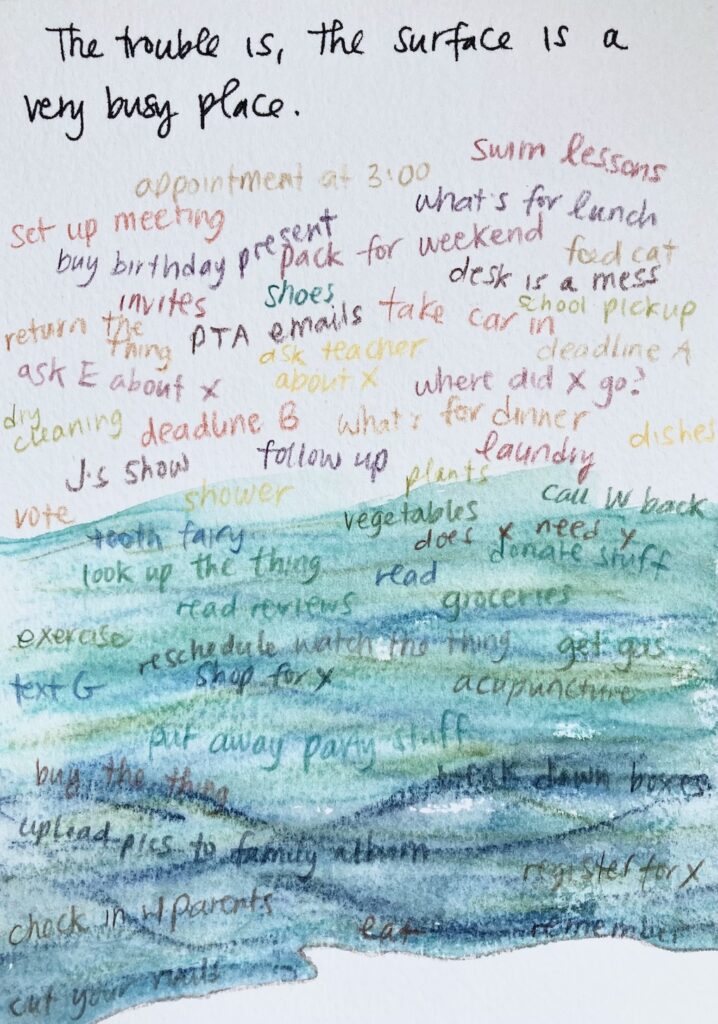 The trouble is, the surface is a
very busy place.
swim lessons
appointment at 3:00
what's for lunch
set up meeting
buy birthday present
pack for weekend
feed cat
desk is a mess
invites
shoes
school pickup
return the
thing
PTA emails
take car in
ask teacher
about X
deadline A
ask E about X
where did X go?
dry
cleaning
deadline B
what's for dinner
dishes
J's show
follow up
laundry
plants
shower
call W back
vote
vegetables
tooth fairy
does X need Y
donate stuff
look up the thing
read
read reviews
groceries
exercise
reschedule
watch the thing
get gas
text G
shop for X
acupuncture
put away party stuff
buy the thing
break down boxes
upload pics to family album
register for X
check in w/parents
eat
remember
cut your nails